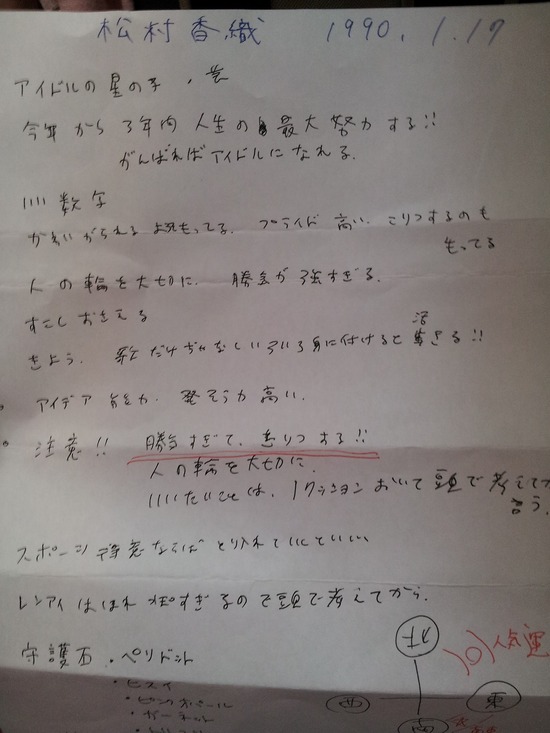 松村香織 1990.1.17
アイドルの星の子、芸
今年から3年内人生の最大努力する!!
がんばればアイドルになれる。
いい数字
かわいがられる よももってる。プライド高い。こりつするのも
もってる
人の輪を大切に。勝気が強すぎる。
すこしおさえる
きよう。歌だけぢゃなしいろいろ身に付けると
活
きる!!
アイデア能力、発そう力高い。
注意!! 勝気すぎて、こりつする!!
人の輪を大切に。
いいたいことは、1クッションおいて頭で考えて
言う。
スポーツ得意ならばとり入れていくといい
レンアイはほれ すぎるので頭で考えてから。
守護石・ペリドット
・ヒスイ
・ピンクオパール
・ガーネット
北
西
東
南
人気運